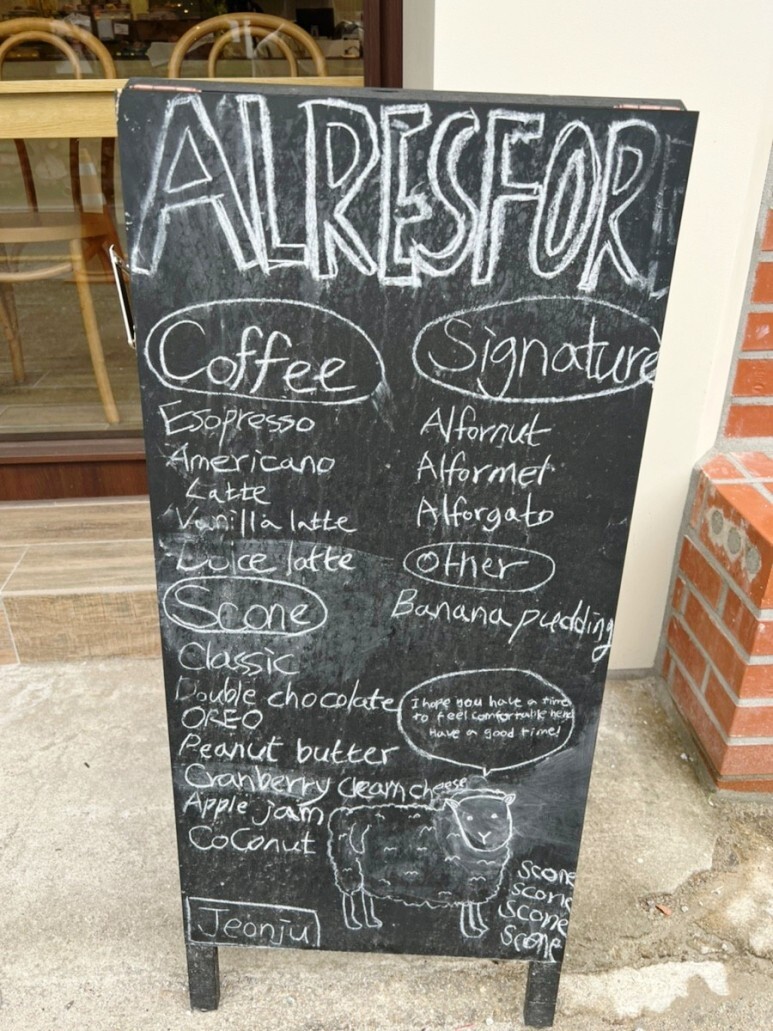 ALRESFOR
Coffee
Esopresso
Americano
Latte
Vanilla latte
Dulce latte
Scone
Classic
Double chocolate
OREO
Peanut butter
Cranberry cleam cheese
Apple jam
CoConut
Jeonju
Signature
Alfornut
Alformet
Alforgato
Other
Banana pudding
I hope you have a time
to feel comfortable here
Have a good time!
Scone
Scone
Scone
Scone